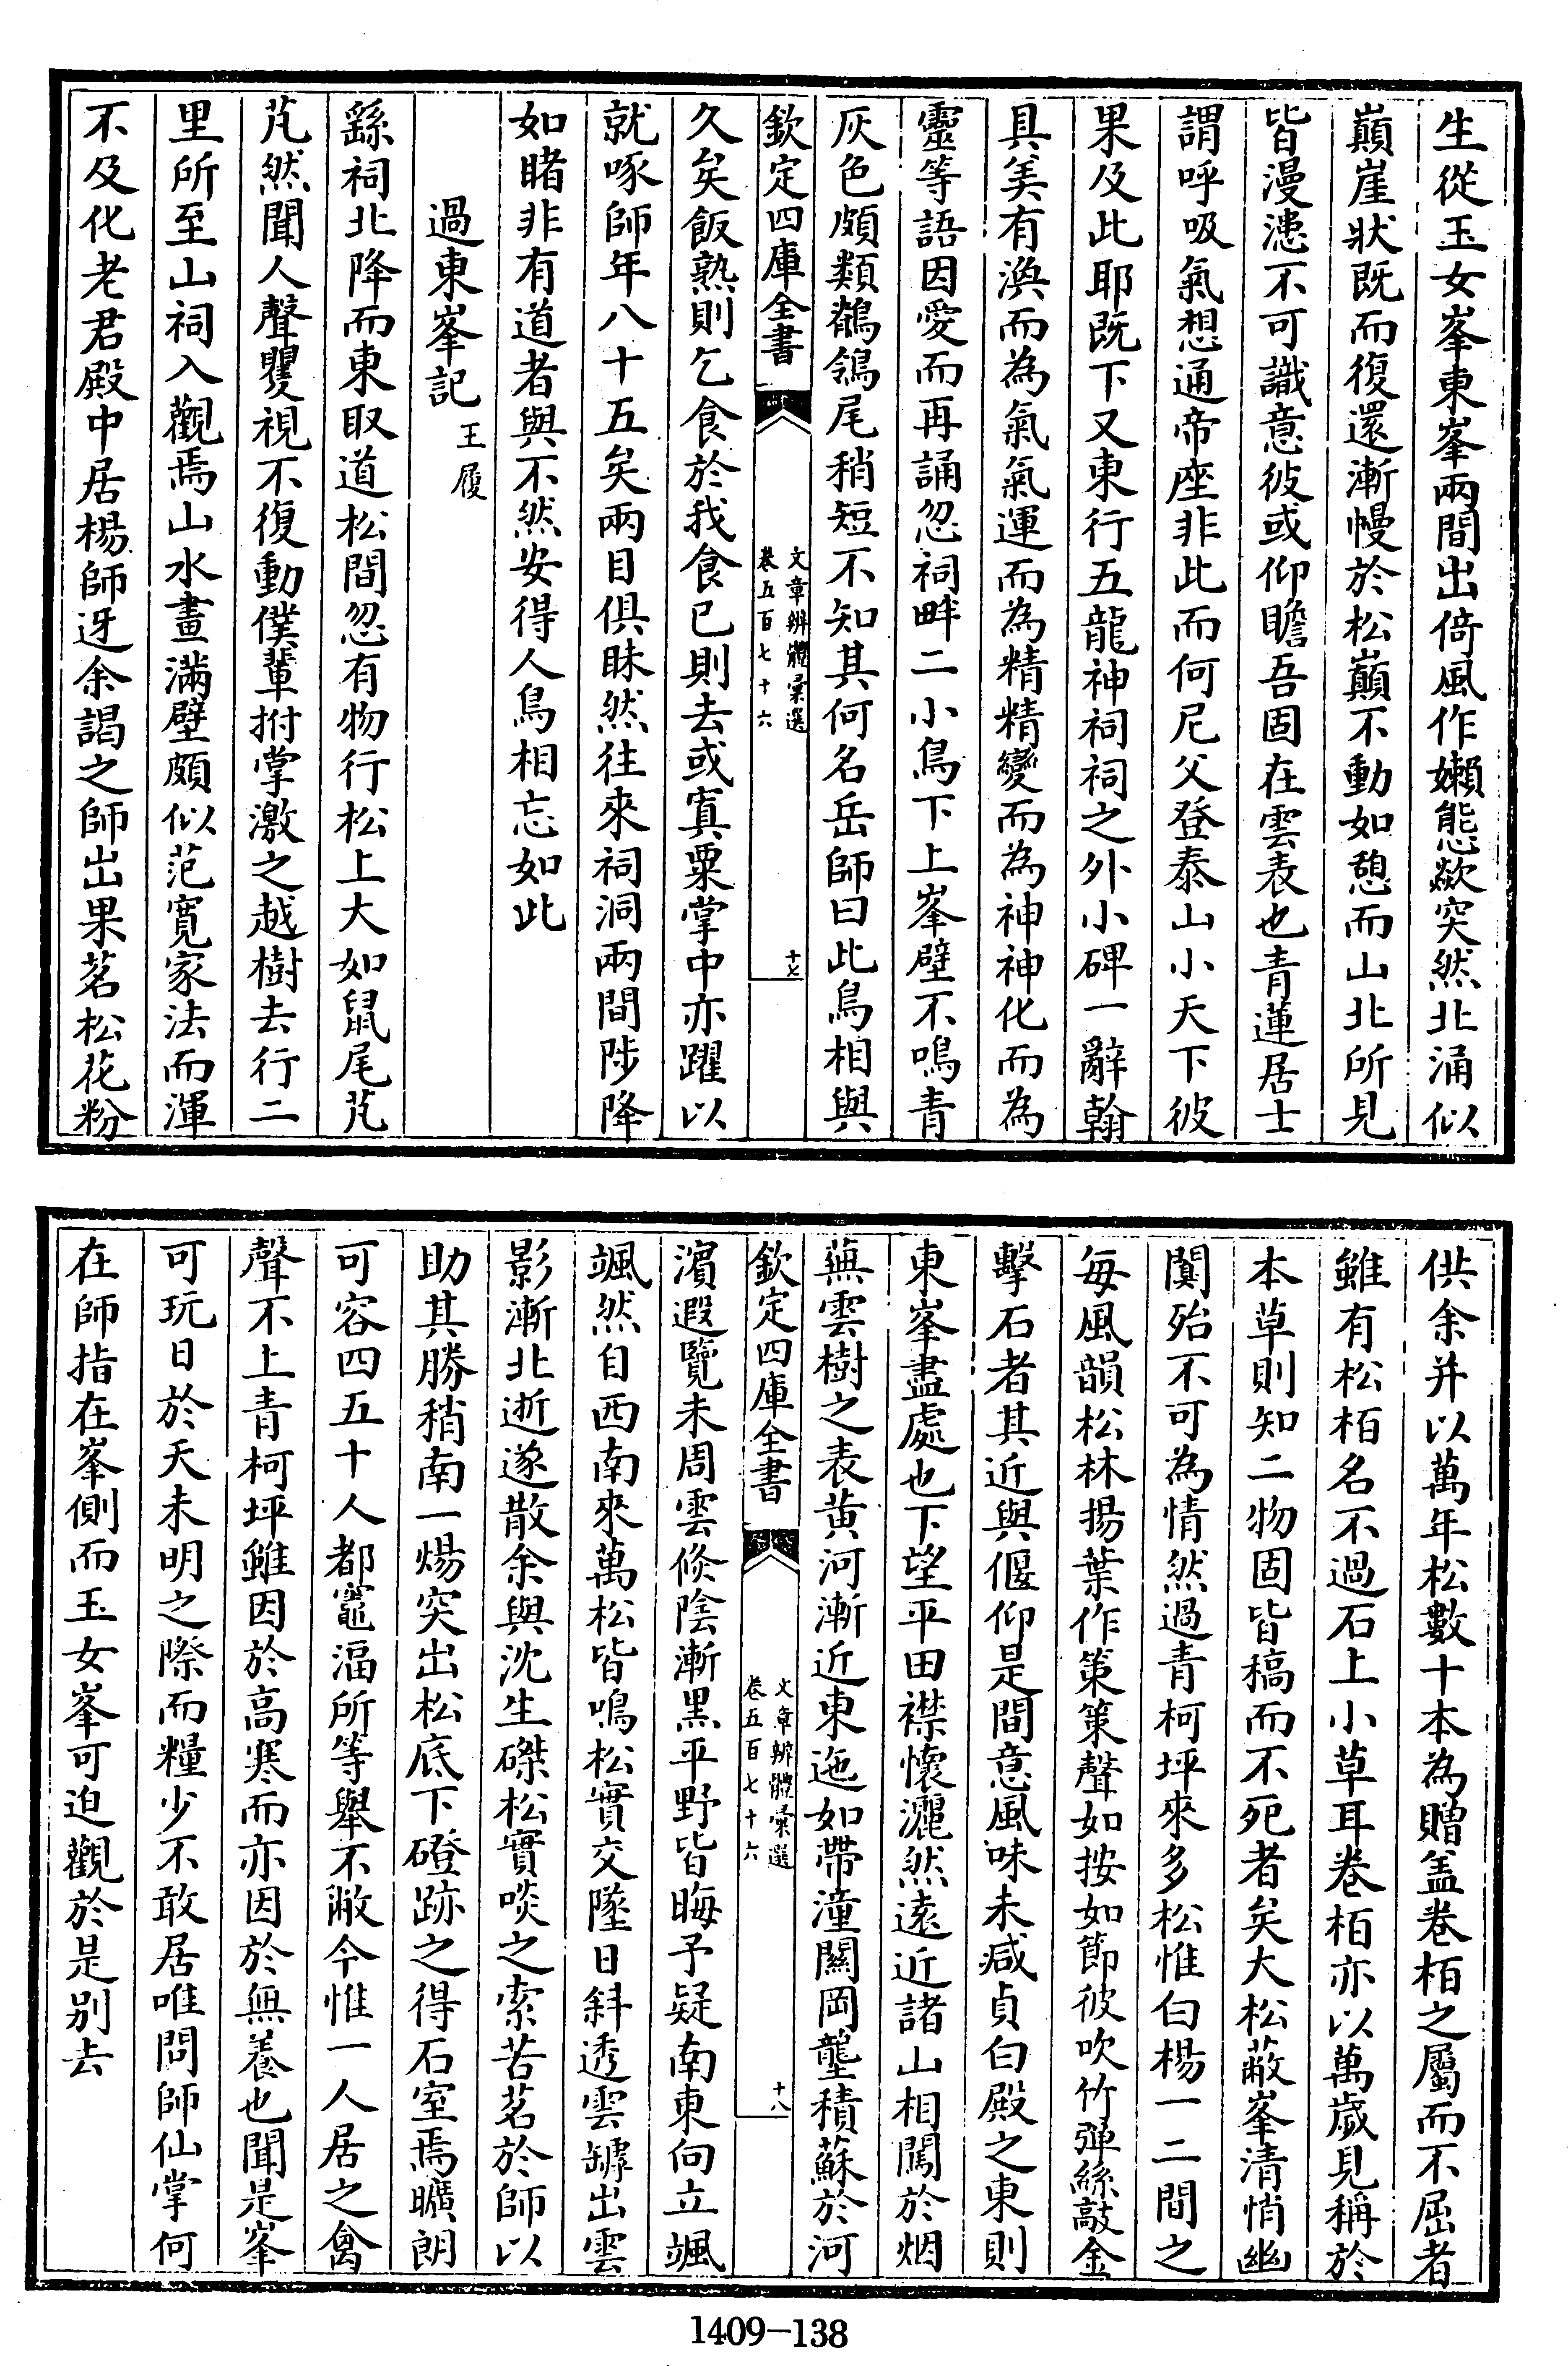 生從玉女峯東峯兩間出倚風作嬾態歘突然北涌似
巔崖狀既而復還漸慢於松巔不動如憩而山北所見
皆漫漶不可識意彼或仰瞻吾固在雲表也青蓮居士
謂呼吸氣想通帝座非此而何尼父登泰山小天下彼
果及此耶既下又東行五龍神祠祠之外小碑一辭翰
具美有渙而為氣氣運而為精精變而為神神化而為
靈等語因愛而再誦忽祠畔二小鳥下上峯壁不鳴青
灰色頗類鶺鴒尾稍短不知其何名岳師曰此鳥相與
欽定四庫全書
文章辨體彚選
卷五百七十六
十七
久矣飯熟則乞食於我食已則去或寘粟掌中亦躍以
就啄師年八十五矣兩目俱昧然往來祠洞兩間陟降
如睹非有道者與不然安得人鳥相忘如此
過東峯記
王履
繇祠北降而東取道松間忽有物行松上大如鼠尾芃
芃然聞人聲矍視不復動僕輩拊掌激之越樹去行二
里所至山祠入觀焉山水畫滿壁頗似范寬家法而渾
不及化老君殿中居楊師迓余謁之師出果茗松花粉
供余并以萬年松數十本為贈盖卷栢之屬而不屈者
雖有松栢名不過石上小草耳卷栢亦以萬歲見稱於
本草則知二物固皆稿而不死者矣大松蔽峯清悄幽
闃殆不可為情然過青柯坪來多松惟白楊一二間之
每風韻松林揚葉作策策聲如按如節彼吹竹彈絲敲金
擊石者其近與偃仰是間意風味未減貞白殿之東則
東峯盡處也下望平田襟懷灑然遠近諸山相鬭於烟
蕪雲樹之表黄河漸近東迤如帶潼關岡壟積蘇於河
欽定四庫全書
文章辨體彚選
卷五百七十六
十八
濵遐覽未周雲倏陰漸黑平野皆晦予疑南東向立颯
颯然自西南來萬松皆鳴松實交墜日斜透雲罅出雲
影漸北逝遂散余與沈生磔松實啖之索苦茗於師以
助其勝稍南一煬突出松底下磴跡之得石室焉曠朗
可容四五十人都竈湢所等舉不敝今惟一人居之禽
聲不上青柯坪雖因於高寒而亦因於無養也聞是峯
可玩日於天未明之際而糧少不敢居唯問師仙掌何
在師指在峯側而玉女峯可迫觀於是别去
1409-138